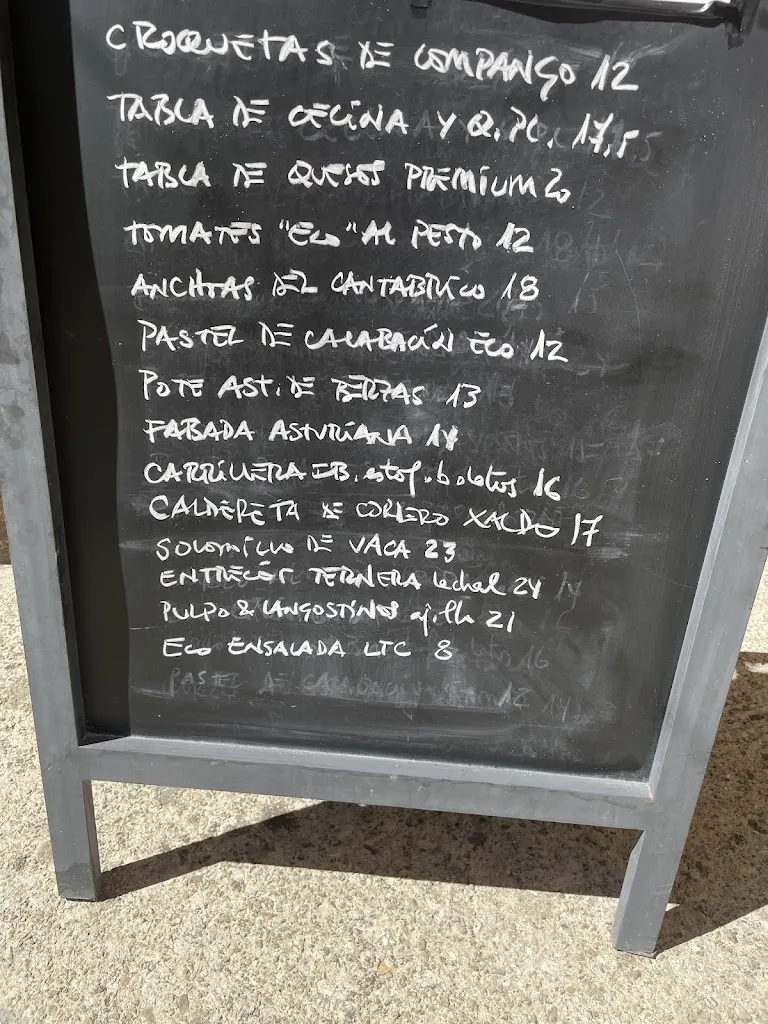 CROQUETAS DE COMPANGO 12
TABLA DE CECINA Y Q. PL. 17,5
TABLA DE QUESOS PREMIUM 20
TOMATES "ECO" AL PESTO 12
ANCHOAS DEL CANTABRICO 18
PASTEL DE CALABACÍN ECO 12
POTE AST. DE BERZAS 13
FABADA ASTURIANA 14
CARRILLERA IB. estof. boletos 16
CALDERETA DE CORDERO XALDO 17
SOLOMILLO DE VACA 23
ENTRECÓT TERNERA lechal 24
PULPO & LANGOSTINOS ajillo 21
ECO ENSALADA LTC 8
PASTEL DE CALABACIN 12 14